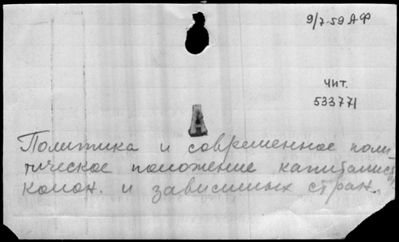 9/7-59 АФ
ЧИТ.
533771
Политика и современное поли
тическое положение капиталист
колон. и зависимых стран.